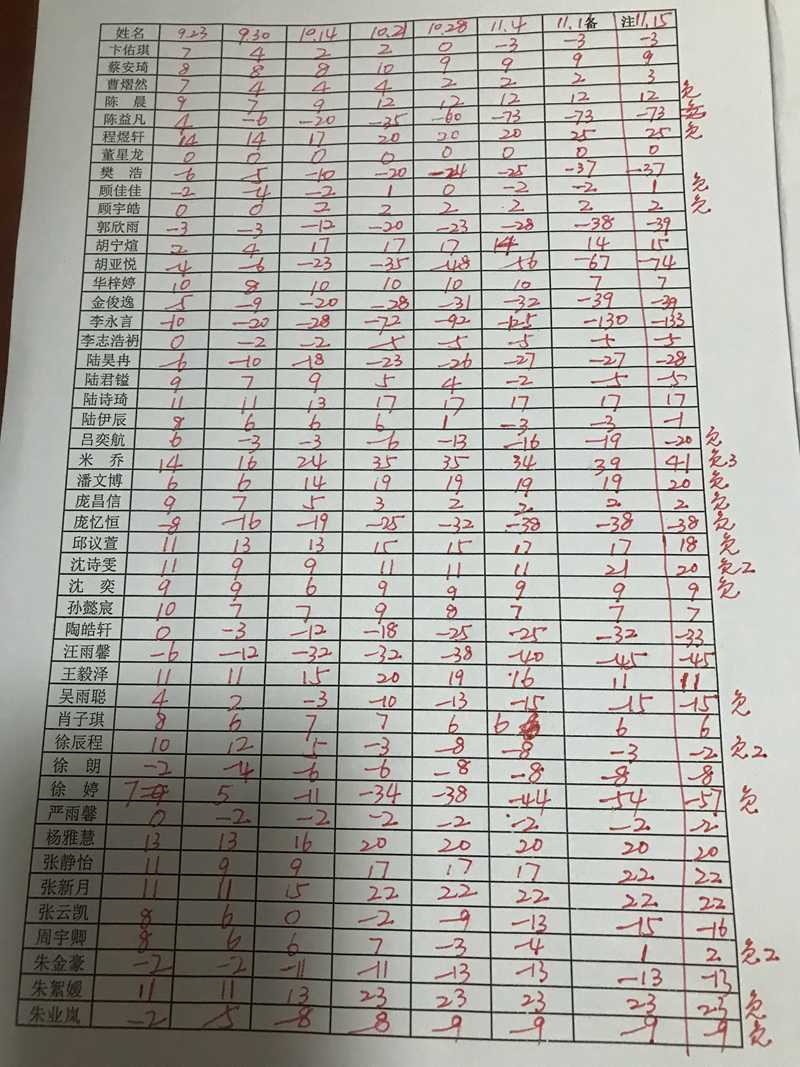 姓名 9.23 9.30 10.14 10.21 10.28 11.4 11.1备 注11.15
卞佑琪 7 4 2 2 0 -3 -3 -3
蔡安琦 8 8 8 10 9 9 9 9
曹熠然 7 4 4 4 2 2 2 3
陈 晨 9 7 9 12 12 12 12 12 免
陈益凡 4 -6 -20 -35 -60 -73 -73 -73
程煜轩 14 14 17 20 20 20 25 25 免
董星龙 0 0 0 0 0 0 0 0
樊 浩 -6 -5 -10 -20 -24 -25 -37 -37
顾佳佳 -2 -4 -2 1 0 -2 -2 1 免
顾宇皓 0 0 2 2 2 2 2 2 免
郭欣雨 -3 -3 -12 -20 -23 -28 -38 -39
胡宁煊 2 4 17 17 17 14 14 15
胡亚悦 -4 -6 -23 -35 -48 -56 -67 -74
华梓婷 10 8 10 10 10 10 7 7
金俊逸 -5 -9 -20 -28 -31 -32 -39 -39
李永言 -10 -20 -28 -72 -92 -125 -130 -133
李志浩礽 0 -2 -2 -5 -5 -5 -5 -5
陆昊冉 -6 -10 -18 -23 -26 -27 -27 -28
陆君镒 9 7 9 5 4 -2 -5 -5
陆诗琦 11 11 13 17 17 17 17 17
陆伊辰 8 6 6 6 1 -3 -3 -1
吕奕航 6 -3 -3 -6 -13 -16 -19 -20 免
米 乔 14 16 24 35 35 34 39 41 免3
潘文博 6 6 14 19 19 19 19 20 免
庞昌信 9 7 5 3 2 2 2 2 免
庞忆恒 -8 -16 -19 -25 -32 -38 -38 -38 免
邱议萱 11 13 13 15 15 17 17 18 免
沈诗雯 11 9 9 11 11 11 21 20 免2
沈 奕 9 9 6 9 9 9 9 9 免
孙懿宸 10 7 7 9 8 7 7 7
陶皓轩 0 -3 -12 -18 -25 -25 -32 -33
汪雨馨 -6 -12 -32 -32 -38 -40 -45 -45
王毅泽 11 11 15 20 19 16 11 11
吴雨聪 4 2 -3 -10 -13 -15 -15 -15 免
肖子琪 8 6 7 7 6 6 6 6
徐辰程 10 12 5 -3 -8 -8 -3 -2 免2
徐 朗 -2 -4 -6 -6 -8 -8 -8 -8
徐 婷 7 5 -11 -34 -38 -44 -54 -57 免
严雨馨 0 -2 -2 -2 -2 -2 -2 -2
杨雅慧 13 13 16 20 20 20 20 20
张静怡 11 9 9 17 17 17 22 22
张新月 11 11 15 22 22 22 22 22
张云凯 8 6 0 -2 -9 -13 -15 -16
周宇卿 8 6 6 7 -3 -4 1 2 免2
朱金豪 -2 -2 -11 -11 -13 -13 -13 -13
朱絮媛 11 11 13 23 23 23 23 23 免
朱业岚 -2 -5 -8 -8 -9 -9 -9 -9 免